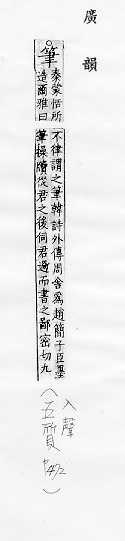 廣韻
筆
秦蒙恬所
造爾雅曰
不律謂之筆韓詩外傳周舍爲趙簡子臣墨
筆操牘從君之後伺君過而書之鄙密切九
入聲
(五質 P472)